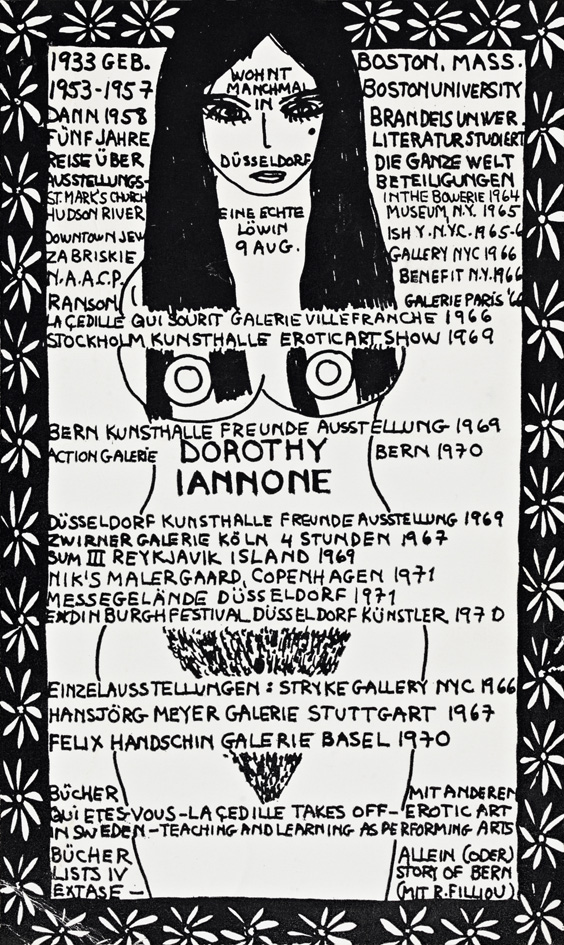 1933 GEB. BOSTON, MASS.
1953-1957 BOSTON UNIVERSITY
WOHNT
MANCHMAL
IN
DÜSSELDORF
DANN 1958 BRANDEIS UNIVER.
FÜNF JAHRE LITERATUR STUDIERT
REISE ÜBER DIE GANZE WELT
AUSSTELLUNGS- BETEILIGUNGEN
ST. MARK'S CHURCH IN THE BOWERIE 1964
HUDSON RIVER MUSEUM, N.Y. 1965
EINE ECHTE
LÖWIN
9 AUG.
DOWNTOWN JEW ISH Y.N.Y.C. 1965-6
ZABRISKIE GALLERY NYC 1966
N.A.A.C.P. BENEFIT N.Y. 1966
RANSON GALERIE PARIS '66
LA ÇEDILLE QUI SOURIT GALERIE VILLEFRANCHE 1966
STOCKHOLM KUNSTHALLE EROTIC ART SHOW 1969
BERN KUNSTHALLE FREUNDE AUSSTELLUNG 1969
ACTION GALERIE BERN 1970
DOROTHY
IANNONE
DÜSSELDORF KUNSTHALLE FREUNDE AUSSTELLUNG 1969
ZWIRNER GALERIE KÖLN 4 STUNDEN 1967
SUM III REYKJAVIK ISLAND 1969
NIK'S MALERGAARD, COPENHAGEN 1971
MESSEGELÄNDE DÜSSELDORF 1971
EXDINBURGH FESTIVAL DÜSSELDORF KÜNSTLER 1970
EINZELAUSSTELLUNGEN: STRYKE GALLERY NYC 1966
HANSJÖRG MEYER GALERIE STUTTGART 1967
FELIX HANDSCHIN GALERIE BASEL 1970
BÜCHER MIT ANDEREN
QUI ETES-VOUS-LA ÇEDILLE TAKES OFF-EROTIC ART
IN SWEDEN-TEACHING AND LEARNING AS PERFORMING ARTS
BÜCHER ALLEIN (ODER)
LISTS IV STORY OF BERN
EXTASE - (MIT R. FILLIOU)